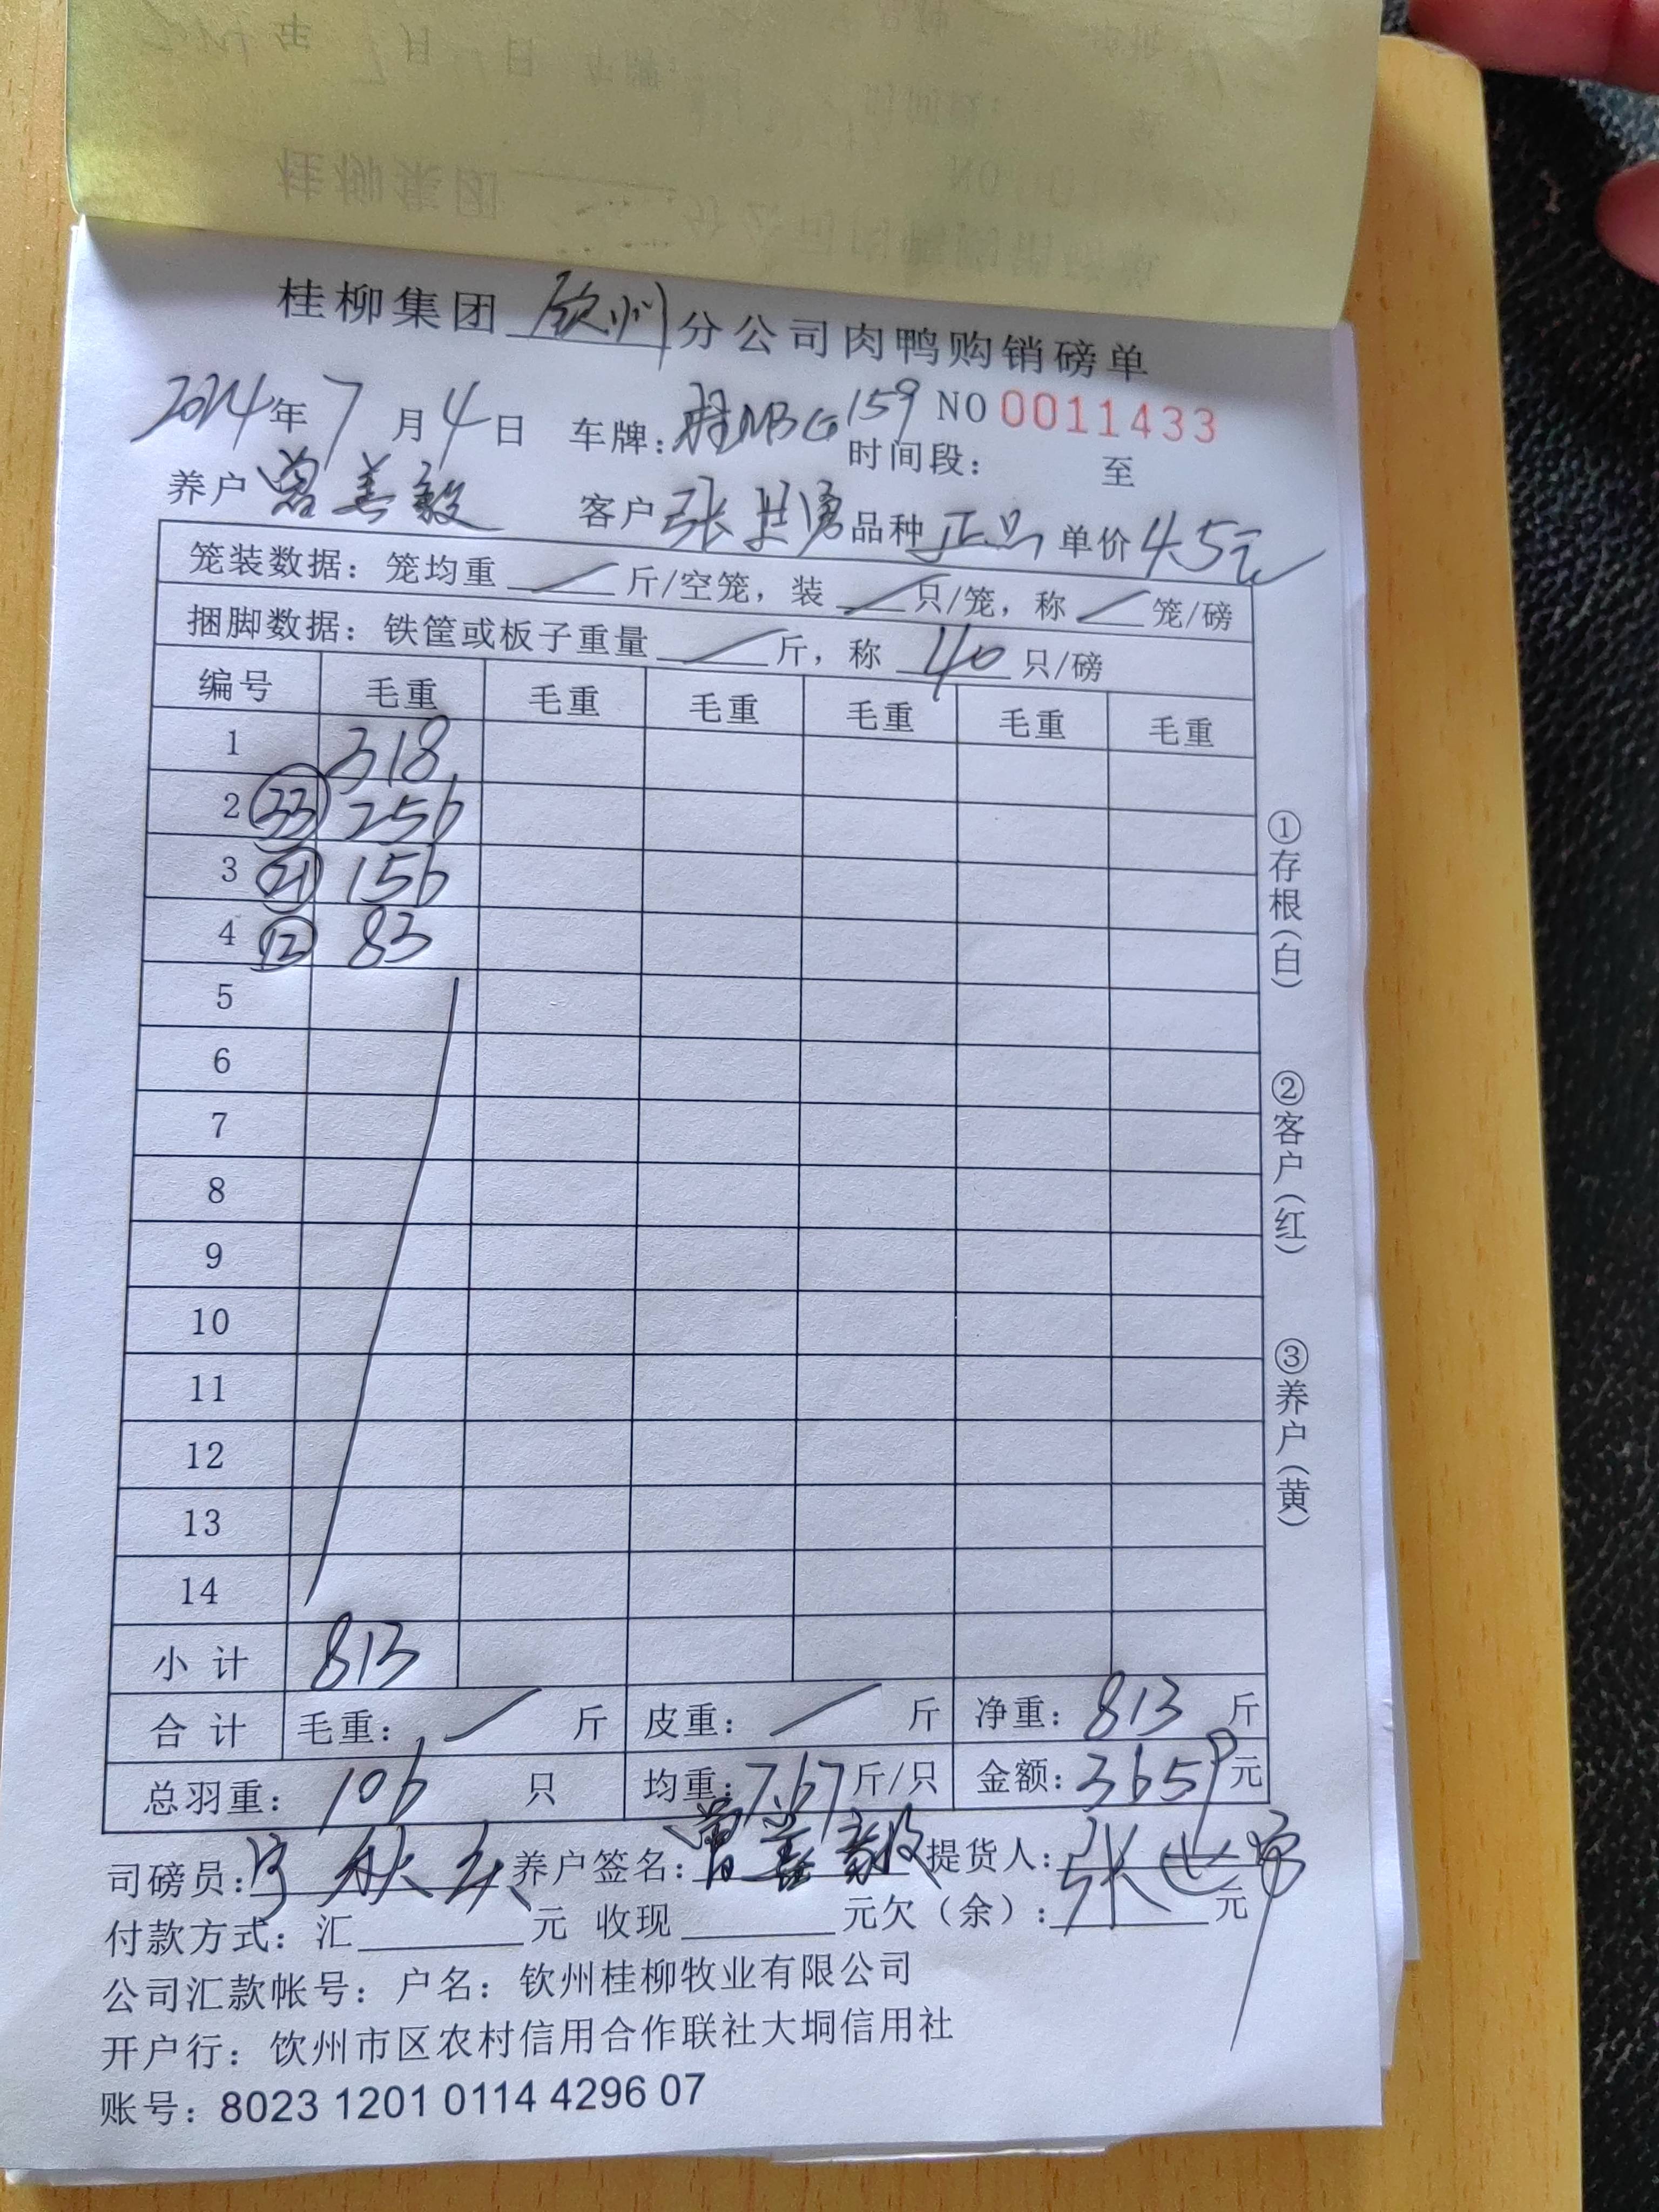 桂柳集团 钦州 分公司肉鸭购销磅单
2024年 7 月 4 日 车牌: 桂NBG159 NO 0011433
时间段: 至
养户 曾善毅 客户 张世勇 品种 正品 单价 4.5元
笼装数据: 笼均重 / 斤/空笼, 装 / 只/笼, 称 / 笼/磅
捆脚数据: 铁筐或板子重量 / 斤, 称 40 只/磅
编号 毛重 毛重 毛重 毛重 毛重 毛重
1 318
2 33 256
3 21 156
4 12 83
5
6
7
8
9
10
11
12
13
14
小 计 813
合 计 毛重: / 斤 皮重: / 斤 净重: 813 斤
总羽重: 106 只 均重: 7.67 斤/只 金额: 3659 元
司磅员: 养户签名: 曾善毅 提货人: 张世勇
付款方式: 汇 元 收现 元欠(余): 元
公司汇款帐号: 户名: 钦州桂柳牧业有限公司
开户行: 饮州市区农村信用合作联社大垌信用社
账号: 8023 1201 0114 4296 07
①存根(白)
②客户(红)
③养户(黄)